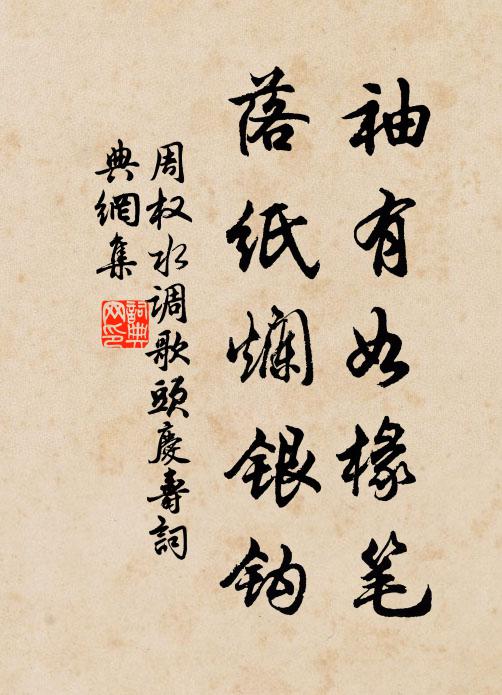 袖有如椽笔
落纸烂银钩
周权水调歌头庆寿词
典网集
词典网印